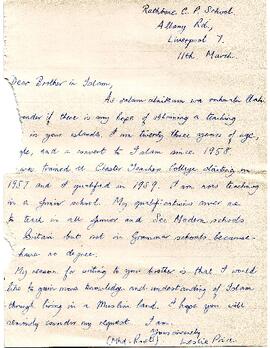 Rathbone C. P. School,
Albany Rd.,
Liverpool 7.
11th March.
Dear Brother in Islam,
As salam alaikum wa
if there is any hope of obtaining a teaching
in your islands. I am twenty three years of age,
and a convert to Islam since 1958.
was trained at Chester Teachers College starting in
1957 and I qualified in 1959. I am now teaching
in a Junior school. My qualifications cover me
to teach in all Junior and Sec Modern schools
Britain but not in Grammar schools because
have no degree.
My reason for writing to you brother is that I would
like to gain more knowledge and understanding of Islam
through living in a Muslim land. I hope you will
consider my request. I am
Yours sincerely
Leslie Price